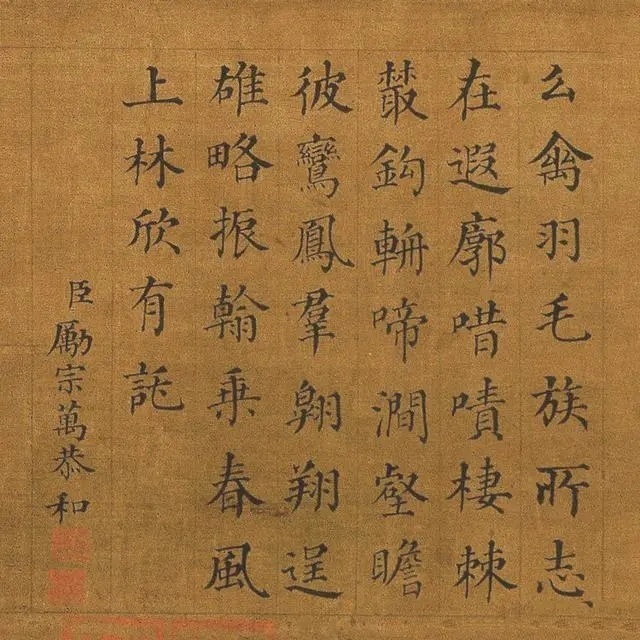 么禽羽毛族所志
在遐廓唶嘖棲棘
叢鈎輈啼澗壑瞻
彼鸞鳳羣翱翔逞
雄略振翰乗春風
上林欣有託
臣勵宗萬恭和